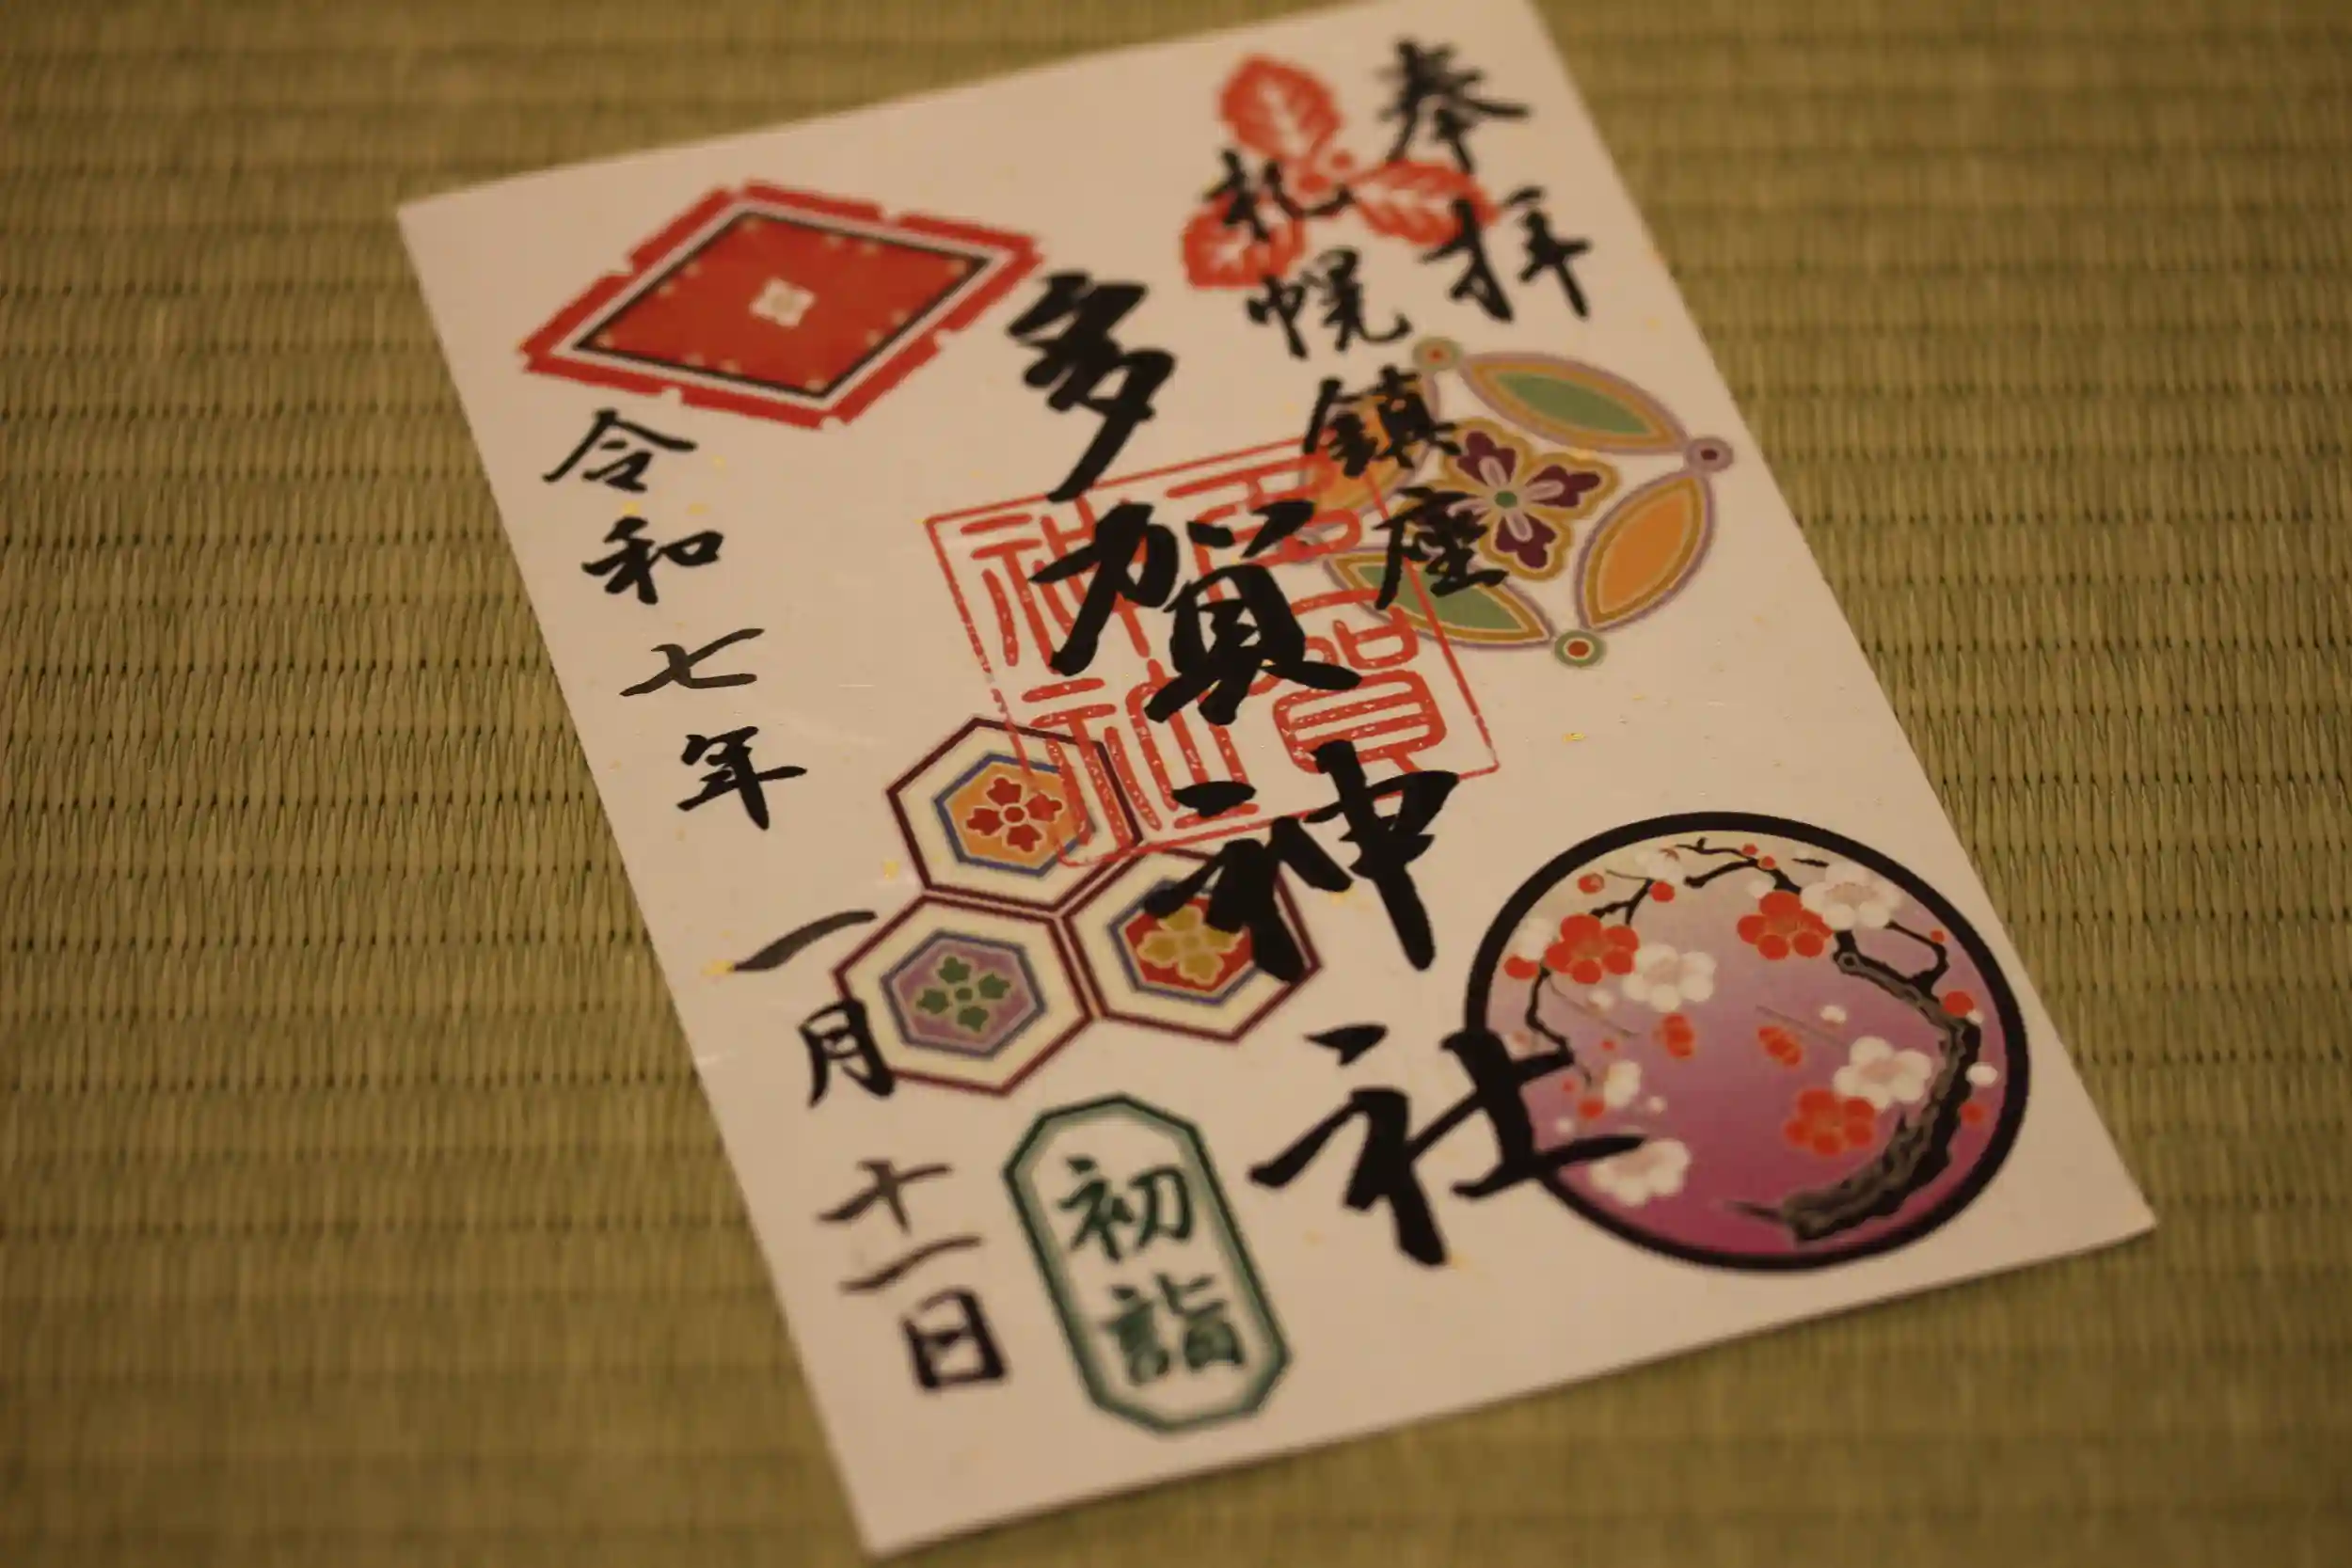 奉拝
札幌鎮座
多賀神社
多賀神社
令和七年一月十一日
初詣